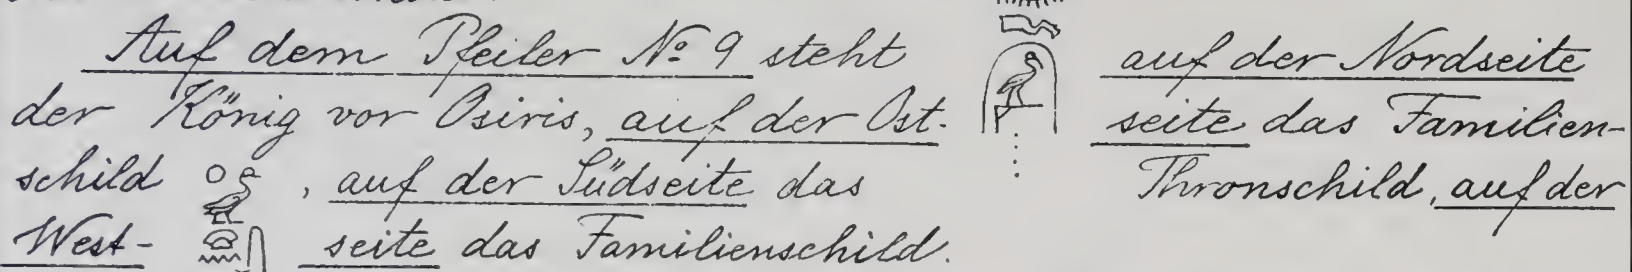 Auf dem Pfeiler No. 9 steht auf der Nordseite
der König vor Osiris, auf der Ost- seite das Familien-
schild , auf der Südseite das Thronschild, auf der
West- seite das Familienschild.